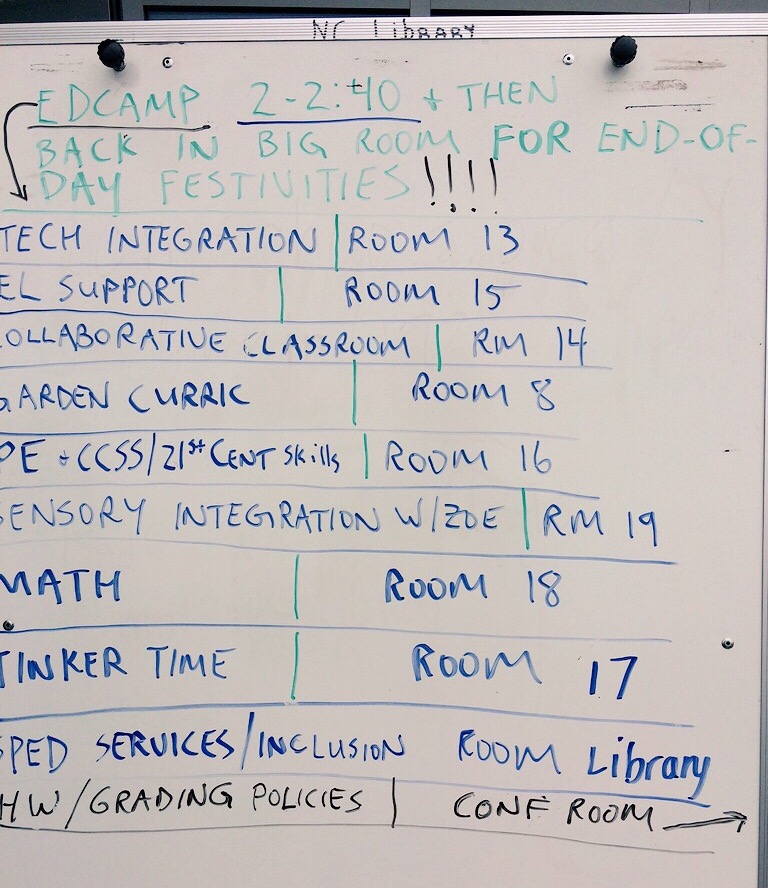 NC LIBRARY
EDCAMP 2-2:40 + THEN
BACK IN BIG ROOM FOR END-OF-
DAY FESTIVITIES !!!!
TECH INTEGRATION | ROOM 13
EL SUPPORT | ROOM 15
COLLABORATIVE CLASSROOM | RM 14
GARDEN CURRIC | ROOM 8
PE + CCSS/21st CENT Skills | ROOM 16
SENSORY INTEGRATION W/ZOE | RM 19
MATH | ROOM 18
TINKER TIME | ROOM 17
SPED SERVICES/INCLUSION ROOM Library
HW/GRADING POLICIES | CONF ROOM →